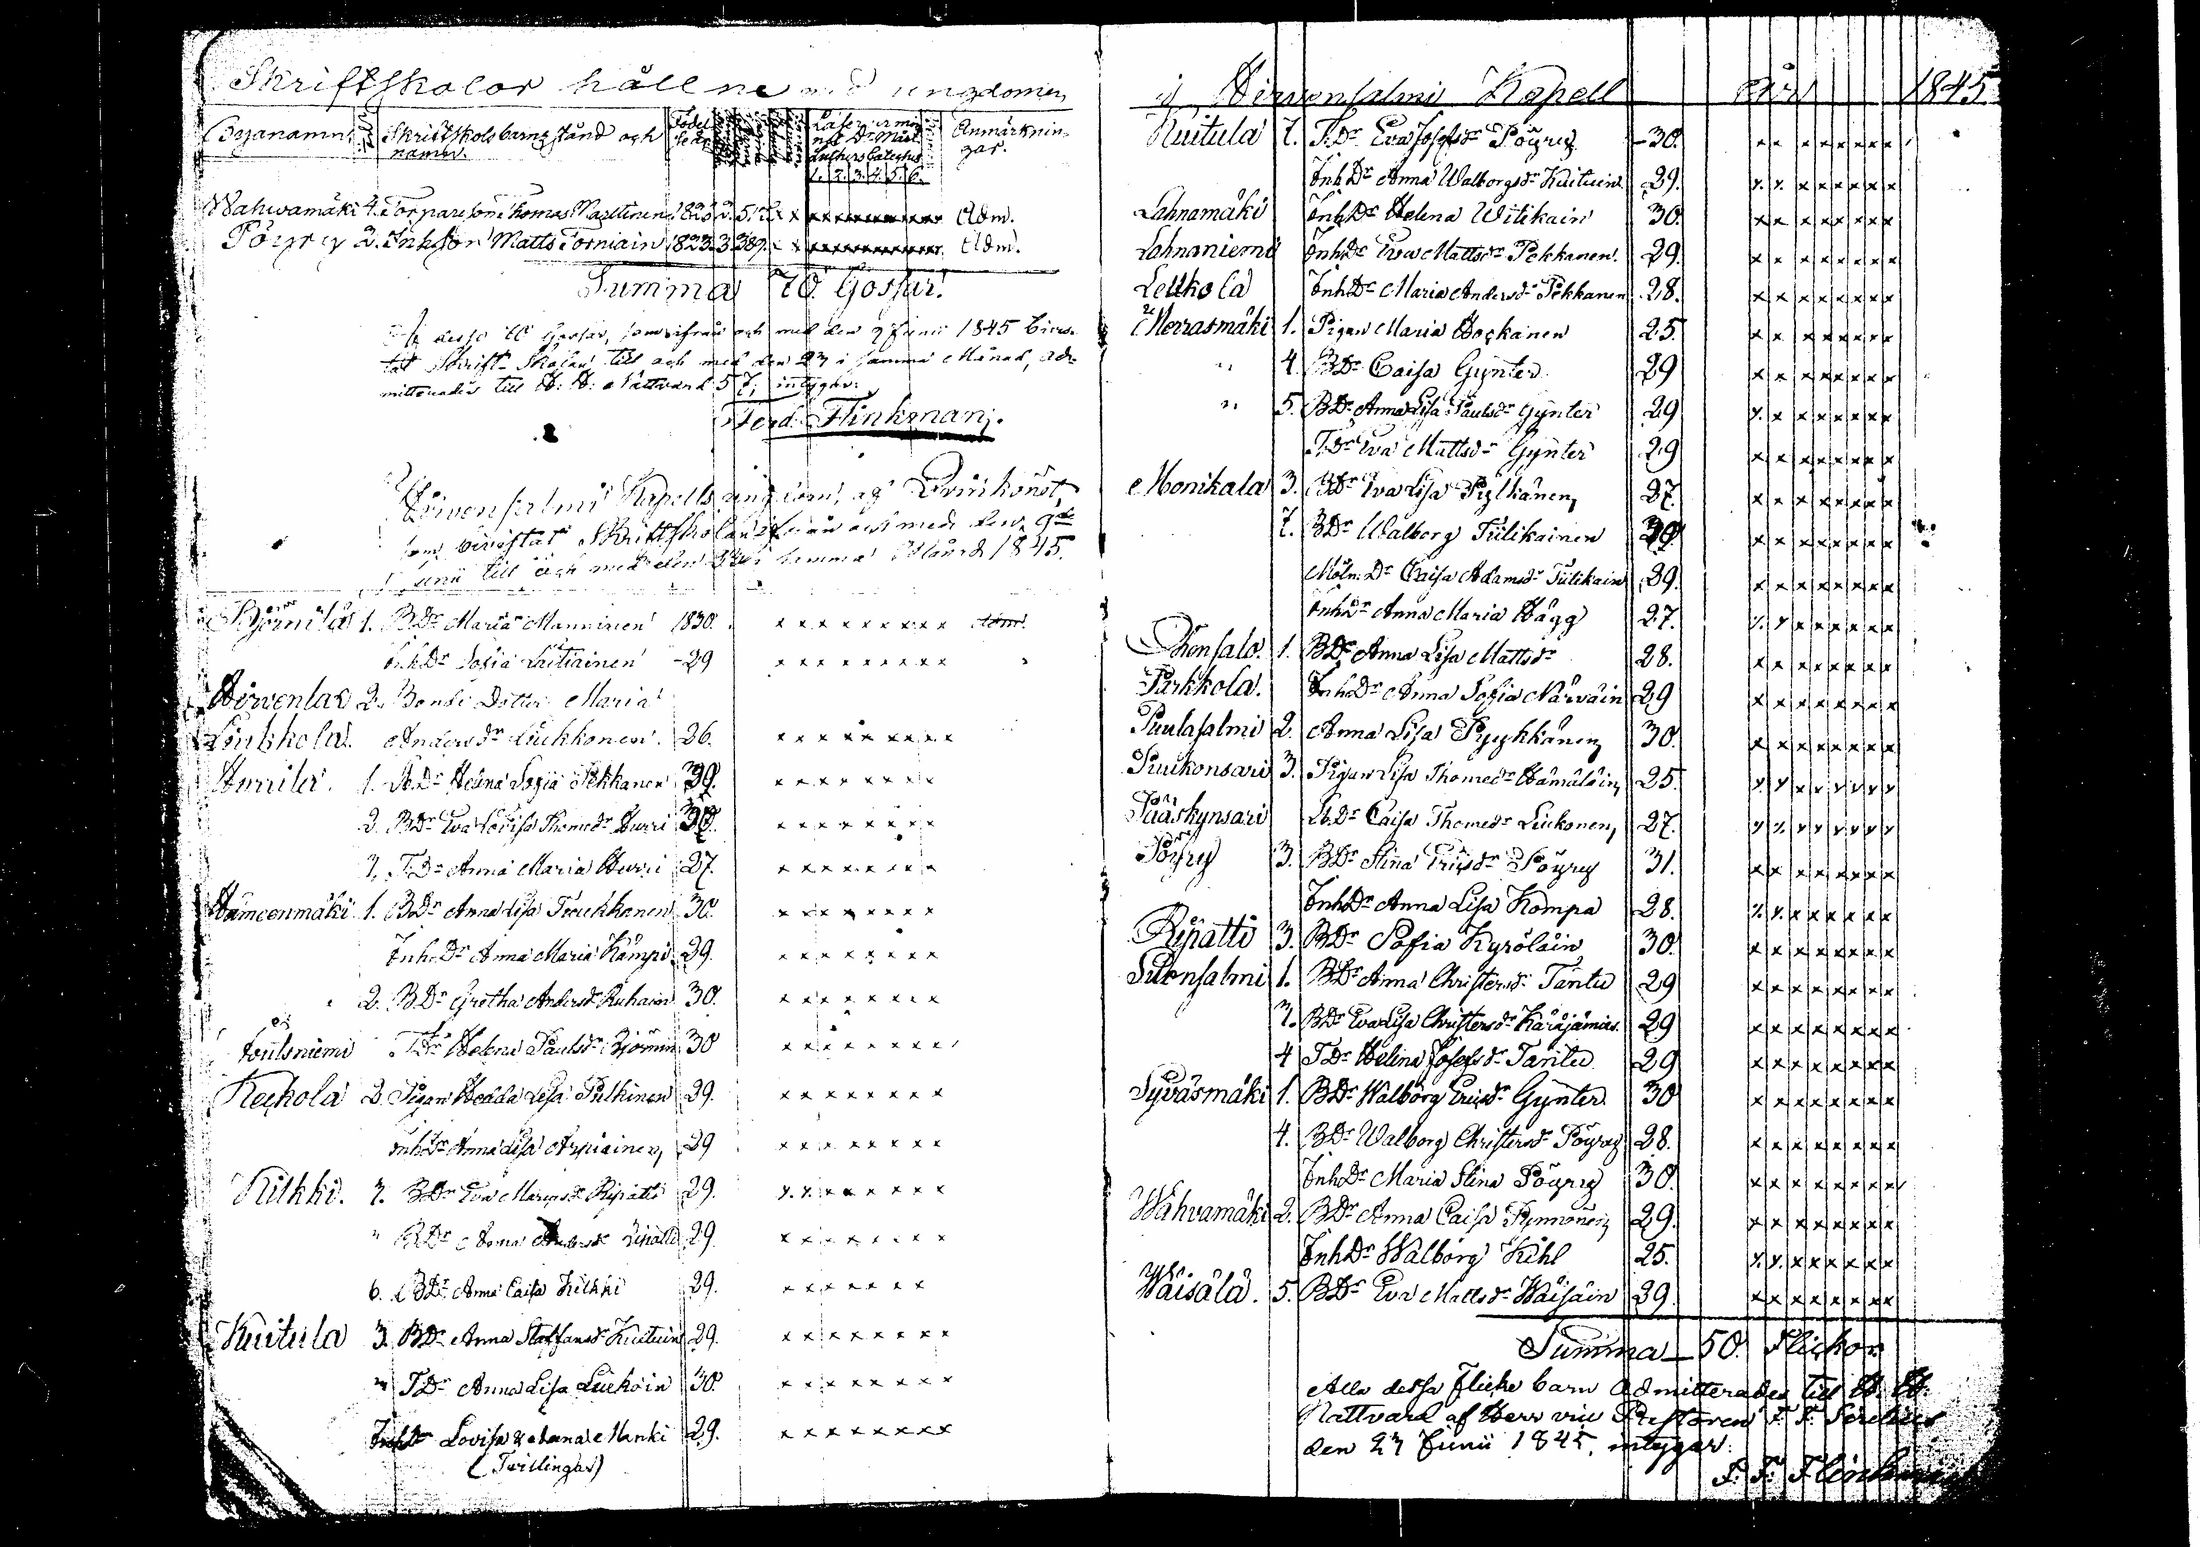 Skriftskolor hållne med ungdomen
Byanamn. Skriftskolsbarnens stånd och namn. Anmärkningar.
1. 2. 3. 4. 5. 6.
Wahwamäki 4. Torpareson Thomas 1826 Adm.
Pöyry 2. Inh:son Matts Torniain 1823. Adm.
Summa 70 Gossar.
Af desse 70 Gossar, som ifrån och med den 9 Junii 1845 bivis-
tat Skrift-Skolan till och med den 27 i samma Månad, ad-
mitterades till H: H: Nattvard 57, intygar:
Ferd. Flinkman.
Hirvensalmi Kapells ungdom, af Qvinkönet,
som bivistat Skriftskolan ifrån och med den 9de
Junii till och med den 27 i samma Månad 1845.
Björnilä 1. BDr Maria Manninen 1830. Adm.
InhDr Sofia Laitiainen -29
Hirvenlax 2. Bonde Dotter Maria
Liukkola. Andersdr Liukkonen. 26.
Hurrila. 1. Helena Sofia Pekkanen 29.
2. BDr Eva Lovisa Thomedr Hurri 30.
7. TDr Anna Maria Hurri 27.
Hämeenmäki 1. BDr Anna Lisa 30.
InhDr Anna Maria Kämpi 29.
2. BDr Gretha Andersdr 30.
TDr Helena Paulsdr Björnin 30
Keckola 2. Pigan Hedda Lisa Pulkinen 29.
InhDr Anna Lisa Arpiainen, 29
Kilkki. 2. BDr Eva Ripatti 29.
" BDr Anna Ripatti 29.
6. BDr Anna Caisa Kilkki 29.
Kuitula 3. BDr Anna Staffansdr Kuituin 29.
" TDr Anna Lisa Liukoin 30.
InhDr Lovisa & Manki 29.
(Tvillingar)
i Hirvensalmi Kapell år 1845
Kuitula 7. TDr Eva Josefsdr Pöyry -30.
InhDr Anna Walborgsdr Kuituin. 29.
Lahnamäki InhDr Helena Witikain 30.
Lahnaniemi InhDr Eva Mattsdr Pekkanen. 29.
Leukola InhDr Maria Andersdr Pekkanen 28.
Merrasmäki 1. Pigan Maria Hockanen 25.
" 4. BDr Caisa Gynter 29
" 5. BDr Anna Lisa Paulsdr Gynter 29
TDr Eva Mattsdr Gynter 29
Monikala 3. BDr Eva Lisa Pylkänen, 27.
7. BDr Walborg Tulikainen 29.
Möln:Dr Caisa Adamsdr Tulikain 29.
InhDr Anna Maria Hägg 27.
1. BDr Anna Lisa Mattsdr 28.
Parkkola. InhDr Anna Sofia Närväin 29
Puulasalmi 2. Anna Lisa Pyykkänen 30.
Puukonsari 3. Pigan Lisa Thomedr Hämäläin, 25.
Pääskynsari Caisa Thomedr Liukonen, 27.
Pöyry 3. BDr Stina Ericsdr Pöyry 31.
InhDr Anna Lisa Kompa 28.
Ripatti 3. BDr Sofia Kyröläin 30.
Suonsalmi 1. BDr Anna Christersdr Tantu 29
BDr Eva Lisa Christersdr Käräjämies. 29
4 TDr Helena Josefsdr Tantu 29
Syväsmäki 1. BDr Walborg Ericsdr Gynter. 30
4. BDr Walborg Christersdr Pöyry 28.
InhDr Maria Stina Pöyry 30.
Wahvamäki 2. BDr Anna Caisa Pynnönen, 29.
InhDr Walborg Kihl 25.
Wäisälä. 5. BDr Eva Mattsdr Wäisäin 29.
Summa 50. Flickor.
Alla dessa flicke barn admitterades till H. H.
Nattvard af Herr vice Pastoren F. F. Serelius
den 27 Junii 1845, intygar:
F. F. Flinkman